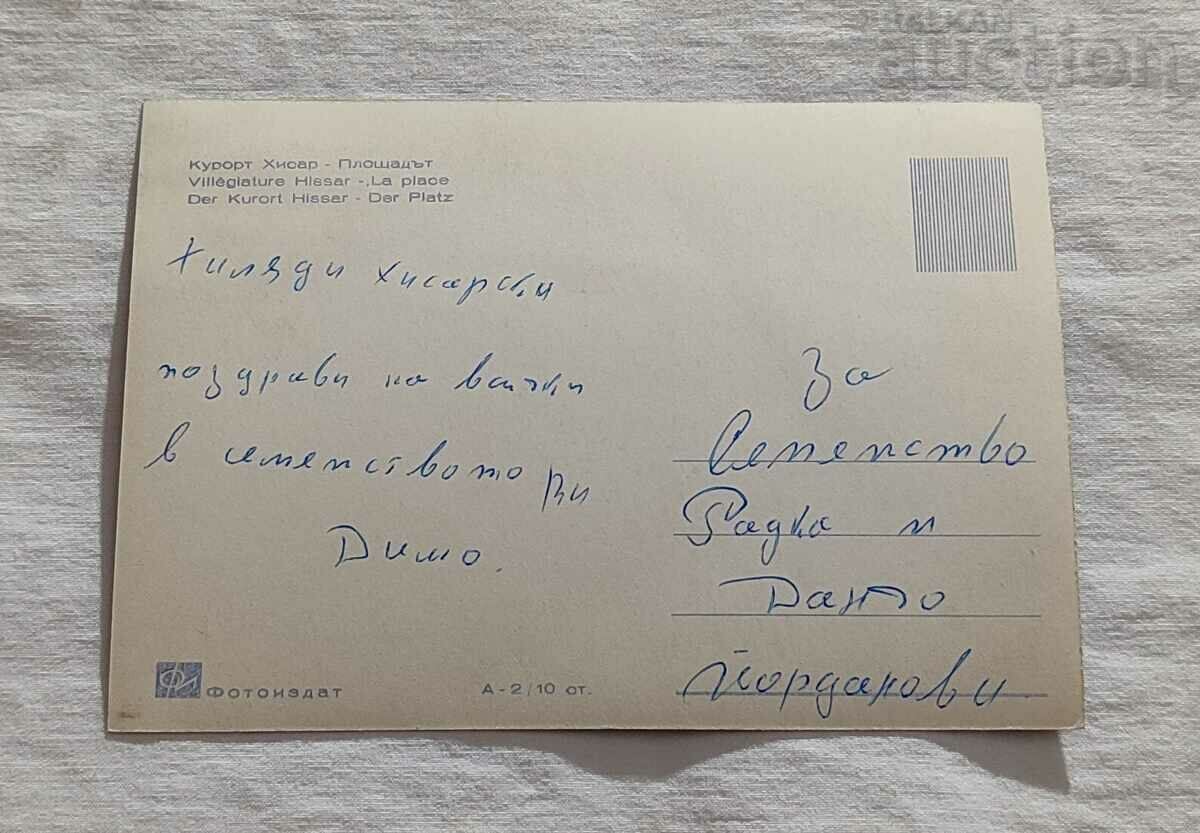 BALKAN
auction
Курорт Хисар - Площадът
Villégiature Hissar - La place
Der Kurort Hissar - Der Platz
Хиляди хисарски
поздрави на всички
в семейството Ви
Димо.
За
Семейство
Радка и
Данчо
Йорданови
Фотоиздат
А-2/10 ст.